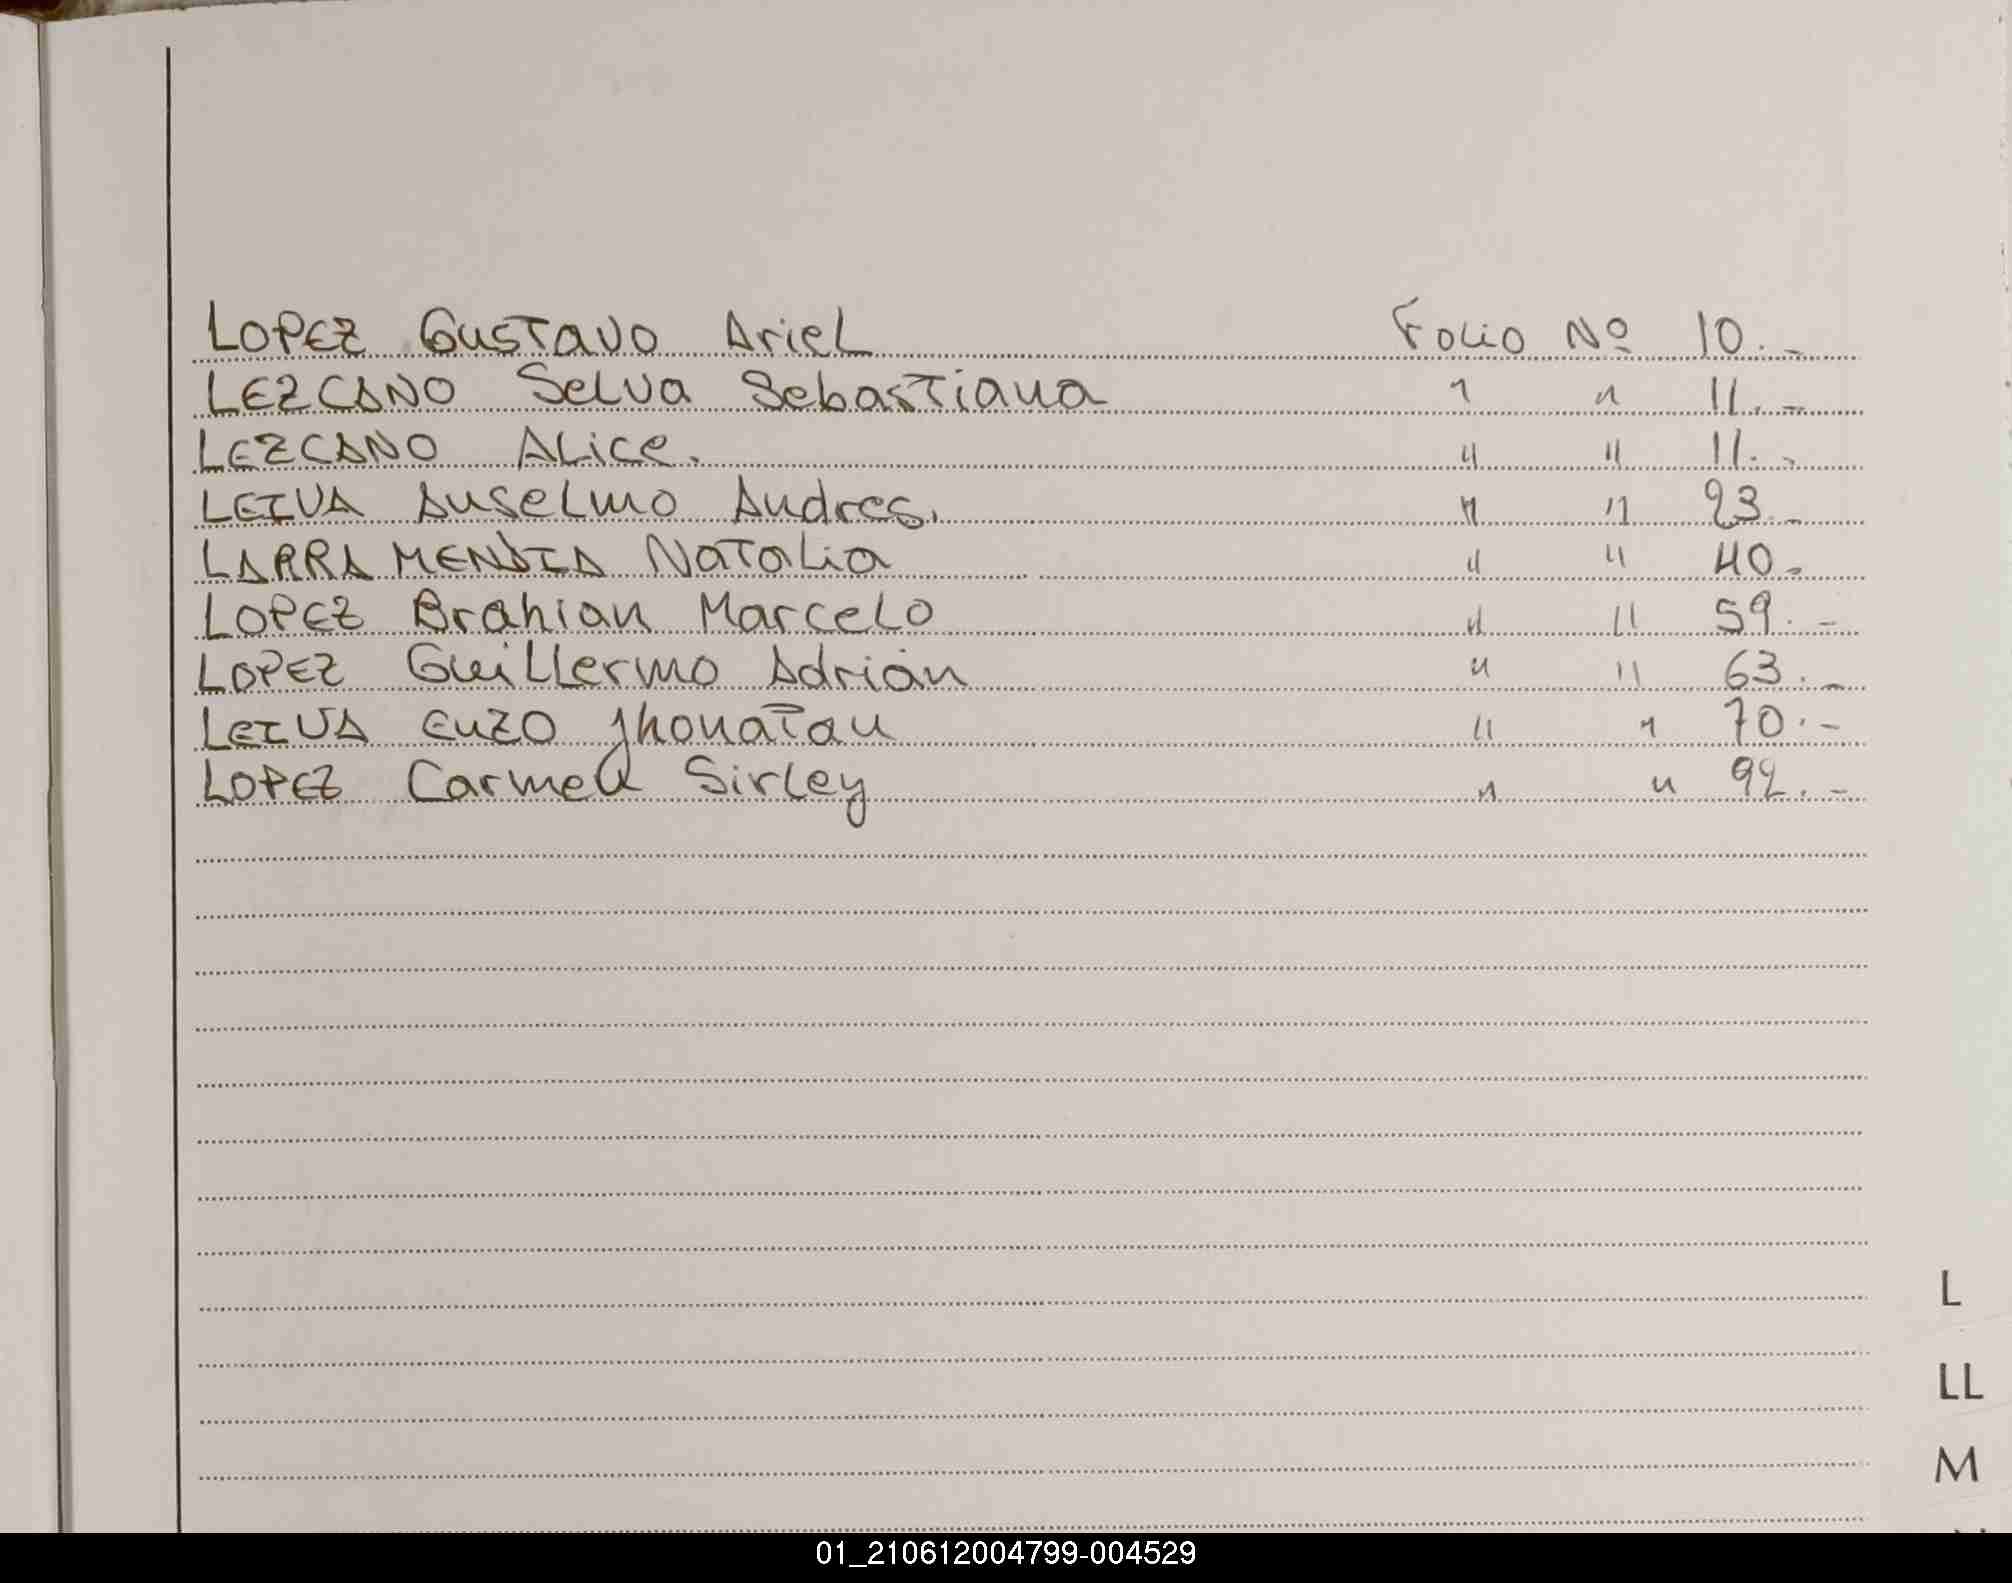 LOPEZ Gustavo Ariel Folio Nº 10.-
LEZCANO Selva Sebastiana " " 11.-
LEZCANO Alice. " " 11.-
LEIVA Anselmo Andres. " " 23.-
LARRAMENDIA Natalia " " 40.-
LOPEZ Brahian Marcelo " " 59.-
LOPEZ Guillermo Adrián " " 63.-
LEIVA Enzo Jhonatan " " 70.-
LOPEZ Carmen Sirley " " 92.-
L
LL
M
01_210612004799-004529